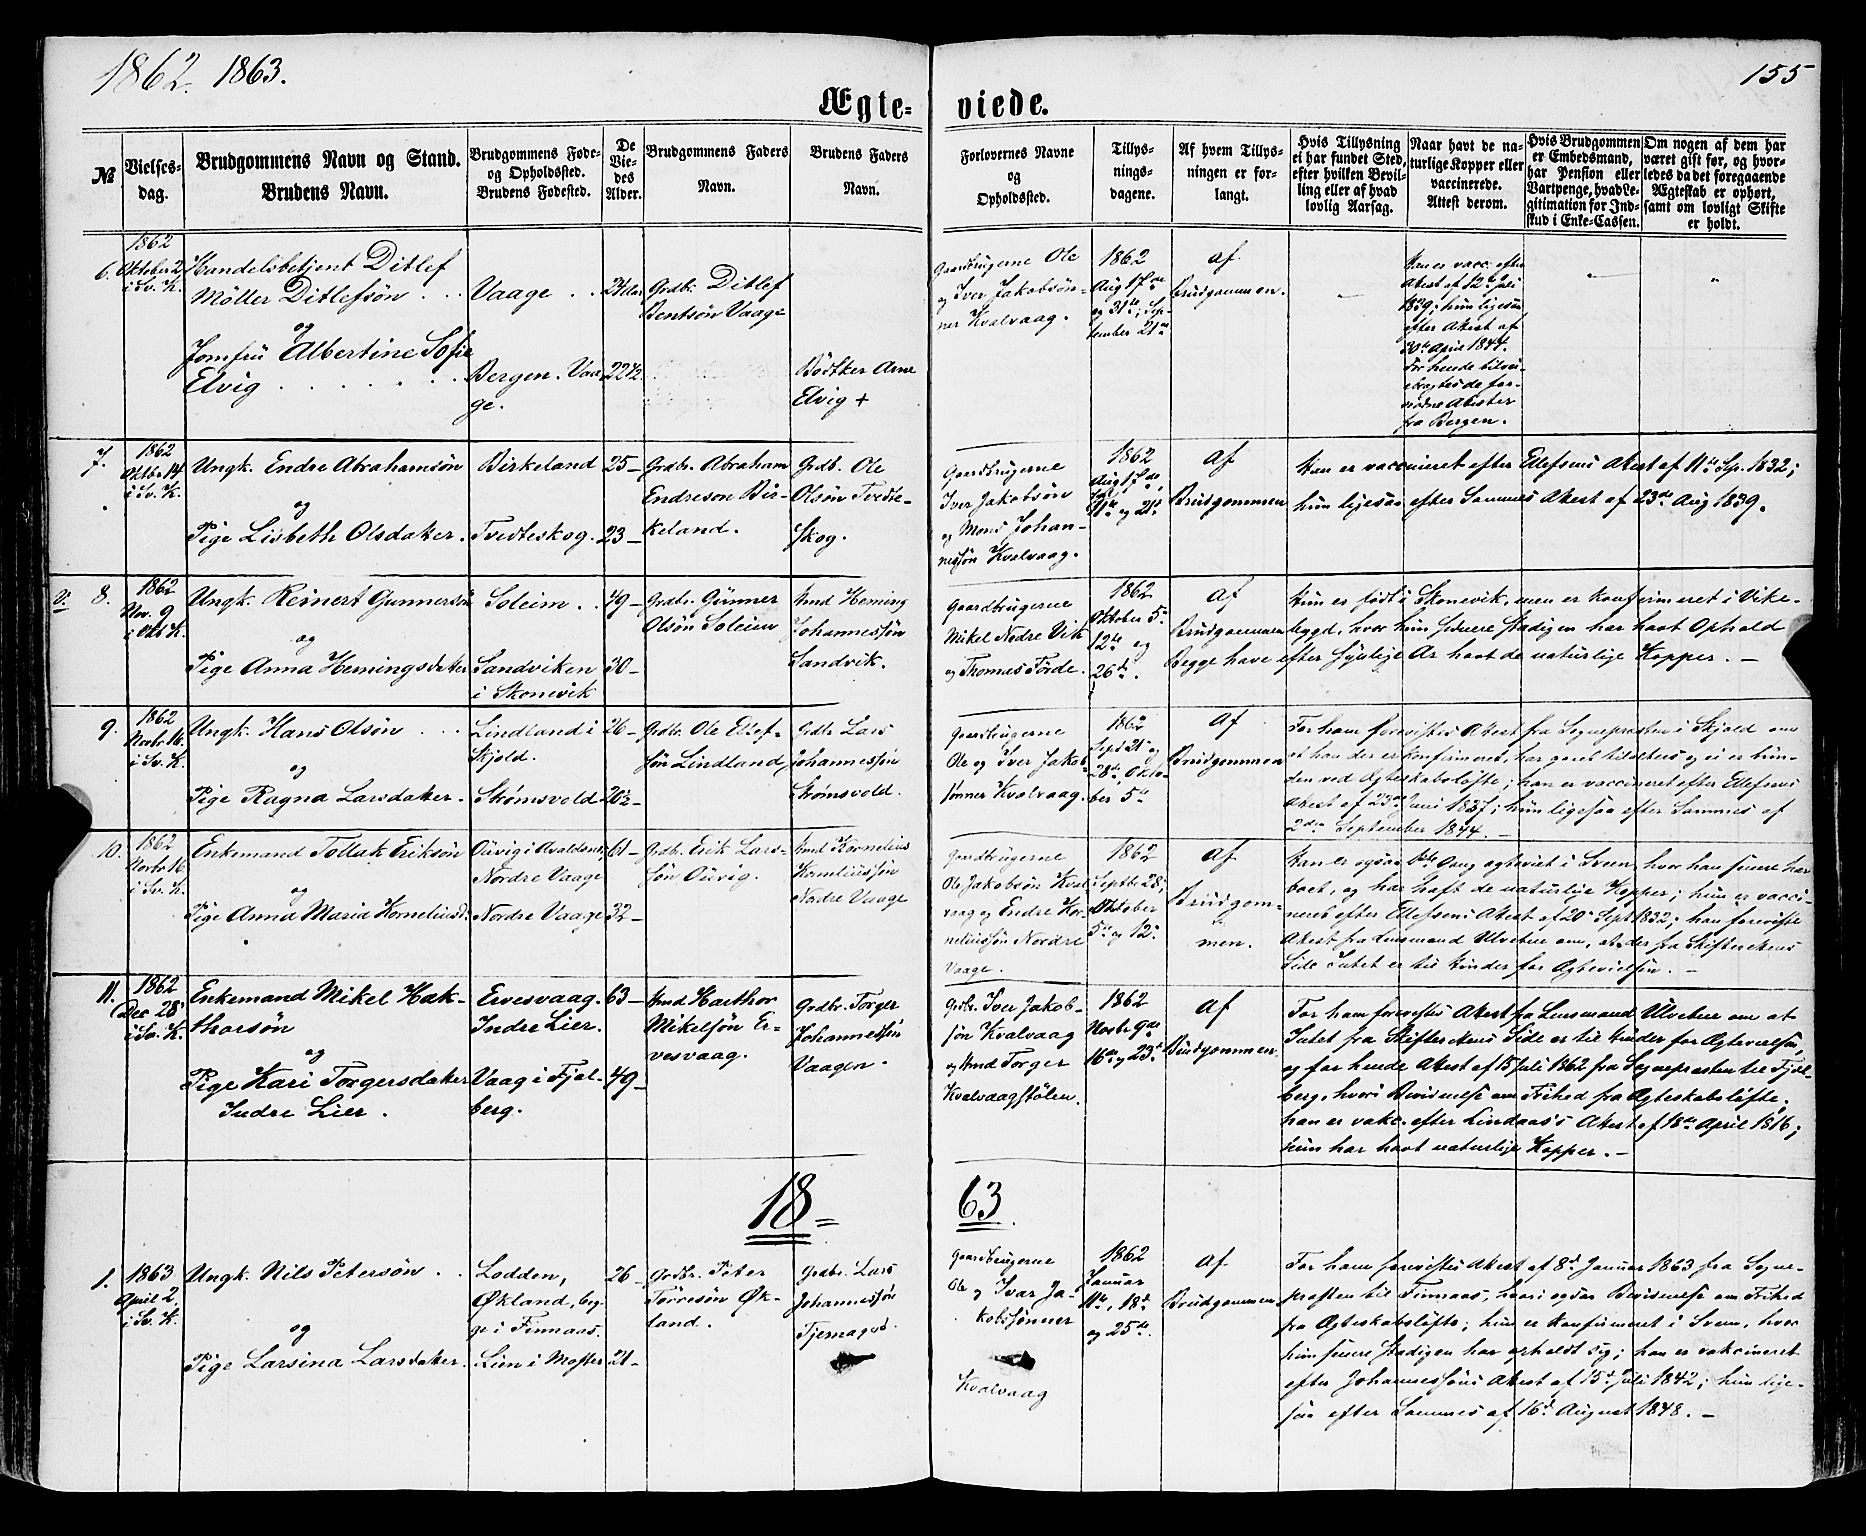 1862. 1863.
155
Ægte= viede.
№
Vielses-
dag.
Brudgommens Navn og Stand.
Brudens Navn.
Brudgommens Føde-
og Opholdssted.
Brudens Fødested.
De
Vie-
des
Alder.
Brudgommens Faders
Navn.
Brudens Faders
Navn.
Forlovernes Navne
og
Opholdssted.
Tillys-
nings-
dagene.
Af hvem Tillys-
ningen er for-
langt.
Hvis Tillysning
ei har fundet Sted,
efter hvilken Bevil-
ling eller af hvad
lovlig Aarsag.
Naar havt de na-
turlige Kopper eller
vaccinerede.
Attest derom.
Hvis Brudgommen
er Embedsmand,
har Pension eller
Vartpenge, hvad Le-
gitimation for Ind-
skud i Enke-Cassen.
Om nogen af dem har
været gift før, og hvor-
ledes da det foregaaende
Ægteskab er ophørt,
samt om lovligt Skifte
er holdt.
6.
1862
Oktober 2
i Sv. K.
Handelsbetjent Ditlef
Møller Ditlefsøn . .
og
Jomfru Albertine Sofie
Elvig . . . . . . .
Vaage . .
Bergen. Vaa-
ge.
24 Aar
22½
Grdbr. Ditlef
Bentsøn Vaage
Bødtker Arne
Elvig +
Gaardbrugerne Ole
og Iver Jakobsøn-
ner Kvalvaag.
1862
Aug 17de
og 31te; Sep-
tember 21de
af
Brudgommen.
Han er vacc. efter
Atest af 12te Juli
1839; hun ligesaa
efter Atest af
30te April 1844.
For hende tilveie-
bragtes de for-
nødne Atester
fra Bergen.
7.
1862
Oktbr 14
i Sv. K.
Ungk. Endre Abrahamsøn
og
Pige Lisbeth Olsdatter.
Birkeland
Tvedteskog.
25 –
23 –
Grdbr. Abraham
Endresøn Bir-
keland.
Grdb. Ole
Olsøn Tvedte-
skog.
Gaardbrugerne
Iver Jakobsøn
og Mons Johan-
nessøn Kvalvaag.
1862
Aug 17de,
31te og 21de
Af
Brudgommen
Han er vaccineret efter Ellefsens Atest af 11te Sep. 1832;
hun ligesaa efter Sammes Atest af 23de Aug 1839.
8.
1862
Nov. 9
Ungk. Reinert Gunnersøn
og
Pige Anna Hemingsdatter
Soleim . .
Sandviken
i Skonevik
49 –
30 –
Grdbr. Gunner
Olsøn Soleim
Hmd Heming
Johannessøn
Sandvik.
Gaardbrugerne
Mikel Nedre Vik
og Thomas Førde.
1862
Oktober 5te
12te og
26de.
Af
Brudgommen
Hun er født i Skonevik, men er konfirmeret i Vike-
bygd, hvor hun senere stadigen har havt Ophold
Begge have efter synlige Ar havt de naturlige Kopper. –
9.
1862
Novbr 16
i Sv. K.
Ungk. Hans Olsøn . . .
og
Pige Ragna Larsdatter.
Lindland i
Skjold.
Strømsvold
26 –
20½ –
Grdbr. Ole Ellef-
søn Lindland,
Grdbr Lars
Johannessøn
Strømsvold.
Gaardbrugerne
Ole og Iver Jakob-
sønner Kvalvaag.
1862
Sept 21de og
28de, Okto-
ber 5te
Af
Brudgommen
For ham forevistes Atest fra Sognepresten i Skjold om
at han der er konfirmeret, har gaaet til Alters og ei er bun-
den ved Ægteskabsløfte; han er vaccineret efter Ellefsens
Atest af 23de Juni 1837; hun ligesaa efter Sammes af
2den September 1844. –
10.
1862
Novbr 16
i Sv. K.
Enkemand Tollak Eriksøn
og
Pige Anna Maria Korneliusd.
Nordre Vaage
Nordre Vaage
61 –
32 –
Grdb. Erik Lars-
søn
Hmd Kornelius
Korneliussøn
Nordre Vaage
Gaardbrugerne
Ole Jakobsøn Kval-
vaag og Endre Kor-
neliussøn Nordre
Vaage.
1862
Septbr 28de,
Oktober
5te og 12te
af
Brudgom-
men.
Han er ogsaa 1ste Gang ægteviet i Sveen, hvor han senere har
boet, og har haft de naturlige Kopper; hun er vacci-
neret efter Ellefsens Atest af 20de Sept 1832; han foreviste
Atest fra Lensmand Ulveteie om, at der fra Skifterettens
Side Intet er til Hinder for Ægtevielsen. –
11.
1862
Dec 28
i Sv. K.
Enkemand Mikel Hak-
tharsøn
og
Pige Kari Torgersdatter
Indre Lier.
Ervesvaag.
Indre Lier.
Vaag i Fjel-
berg.
63 –
49 –
Hmd Hacthor
Mikelsøn Er-
vesvaag.
Grdbr. Torger
Johannessøn
Vaagen.
Grdbr. Iver Jakob-
søn Kvalvaag
og Hmd Torger
Kvalvaagstølen.
1862
Novbr 9de
16de og 23de
Af
Brudgommen
For ham forevistes Atest fra Lensmand Ulveteie om at
Intet fra Skifterettens Side er til Hinder for Ægtevielsen,
og for hende Atest af 15 Juli 1862 fra Sognepresten til Fjel-
berg, hvori Bevidnelse om Frihed fra Ægteskabsløfte;
han er vakc. efter Lindaas's Atest af 18de April 1816;
hun har havt naturlige Kopper. –
18= 63.
1.
1863
April 2
i Sv. K.
Ungk. Nils Petersøn . .
og
Pige Larsina Larsdatter.
Lodden,
Økland, beg-
ge i Finnaas.
Lien i Moster
26 –
21 –
Grdbr. Peter
Tørresøn Øk-
land.
Grdbr. Lars
Johannessøn
Tjernagel.
Gaardbrugerne
Ole og Ivar Ja-
kobssønner
Kvalvaag
1862
Januar
11te, 18de
og 25de.
Af
Brudgommen
For ham forevistes Atest af 8de Januar 1863 fra Sogne-
præsten til Finnaas, hvori ogsaa Bevidnelse om Frihed
fra Ægteskabsløfte; hun er konfirmeret i Sveen, hvor
hun senere stadigen har opholdt sig; han er vakcineret
efter Johannessøns Atest af 15de Juli 1842; hun lige-
saa efter Sammes af 16de August 1848. –